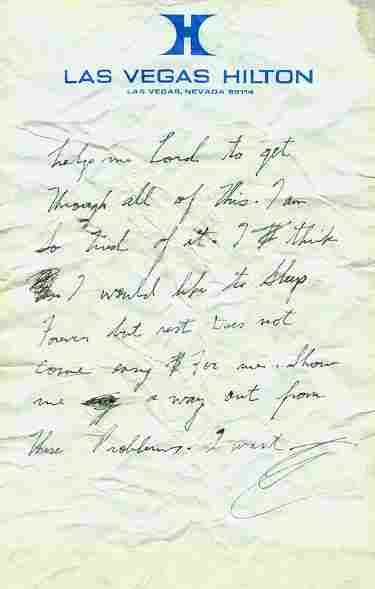 H
LAS VEGAS HILTON
LAS VEGAS, NEVADA 89114
help me Lord to get
through all of this. I am
so tired of it. I think
I would like to sleep
Forever but rest does not
come easy For me. Show
me a way out from
these Problems. I want